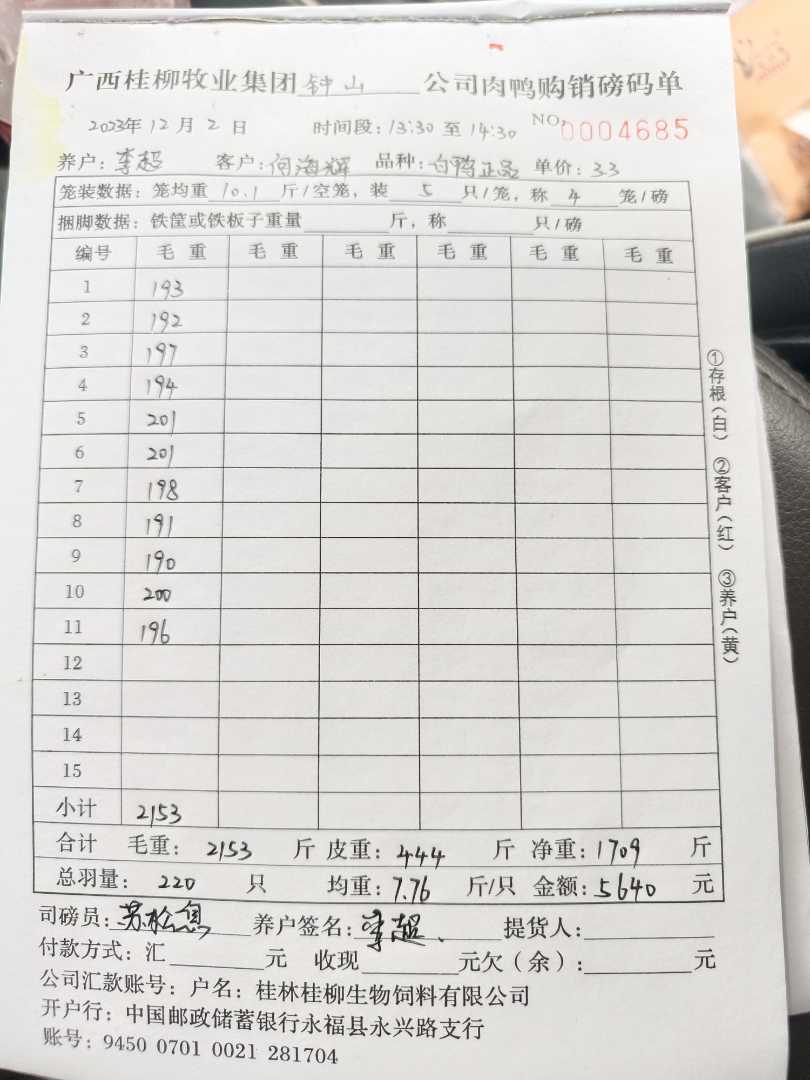 广西桂柳牧业集团钟山公司肉鸭购销磅码单
2023年12月2日 时间段:13:30至14:30 NO.0004685
养户:李超 客户:向海辉 品种:白鸭正品 单价:3.3
笼装数据:笼均重10.1斤/空笼,装5只/笼,称4笼/磅
捆脚数据:铁筐或铁板子重量 斤,称 只/磅
编号 毛重 毛重 毛重 毛重 毛重 毛重
1 193
2 192
3 197
4 194
5 201
6 201
7 198
8 191
9 190
10 200
11 196
12
13
14
15
小计 2153
合计 毛重:2153 斤 皮重:444 斤 净重:1709 斤
总羽量:220 只 均重:7.76 斤/只 金额:5640 元
司磅员:苏松 养户签名:李超 提货人:
付款方式:汇 元 收现 元欠(余): 元
公司汇款账号:户名:桂林桂柳生物饲料有限公司
开户行:中国邮政储蓄银行永福县永兴路支行
账号:9450 0701 0021 281704
①存根(白) ②客户(红) ③养户(黄)